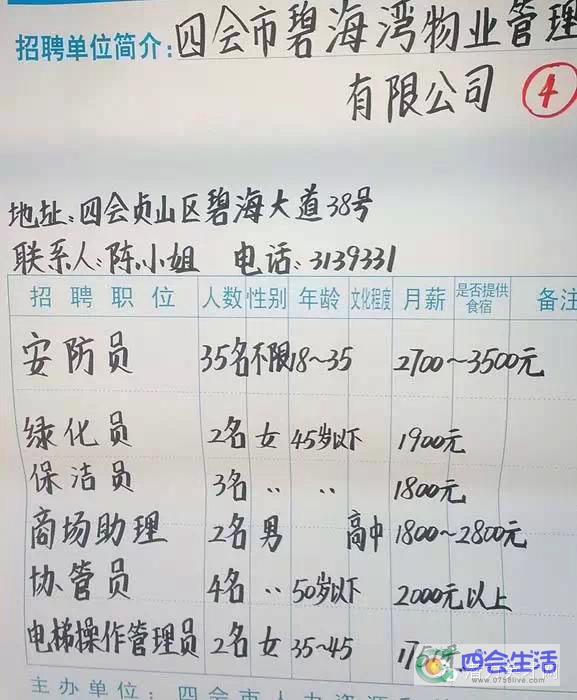 招聘单位简介:四会市碧海湾物业管理
有限公司 4
地址:四会贞山区碧海大道38号
联系人:陈小姐 电话:3139331
招聘职位 人数 性别 年龄 文化程度 月薪 是否提供食宿 备注
安防员 35名 不限 18~35 2700~3500元
绿化员 2名 女 45岁以下 1900元
保洁员 3名 〃 〃 1800元
商场助理 2名 男 高中 1800~2800元
协管员 4名 〃 50岁以下 2000元以上
电梯操作管理员 2名 女 35~45
四会生活
www.0758live.com
主办单位:四会市人力资源